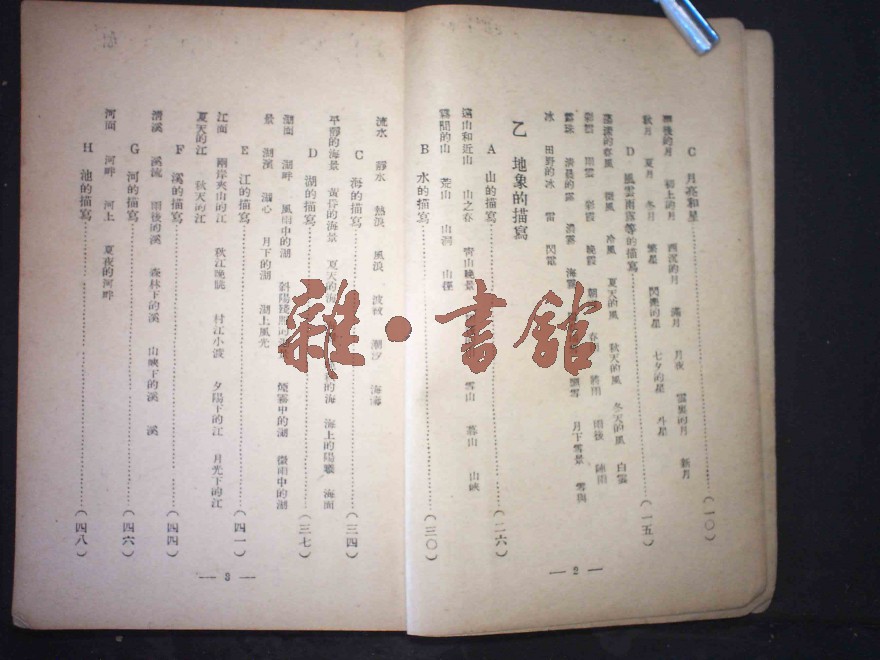 C 月亮和星……(一〇)
雨後的月 初上的月 西沉的月 滿月 月夜 雲裏的月 新月
秋月 夏月 冬月 繁星 閃爍的星 七夕的星
D 風雲雨露等的描寫……(一五)
微風 冷風 夏天的風 秋天的風 冬天的風 白雲
彩雲 雨雲 彩霞 晚霞 雨後 陣雨
露珠 清晨的露 濃霧 月下雪景 雪與
冰 田野的冰 雷 閃電
乙 地象的描寫
A 山的描寫……(二六)
遠山和近山 山之春 雪山 山峽
霧間的山 荒山 山洞 山徑
B 水的描寫……(三〇)
流水 靜水 熱浪 風浪 波紋 潮汐 海濤
C 海的描寫……(三四)
平靜的海景 黃昏的海景 夏天的海 的海 海上的 海面
D 湖的描寫……(三七)
湖面 湖畔 風雨中的湖 斜陽 煙霧中的湖 微雨中的湖
景 湖濱 湖心 月下的湖 湖上風光
E 江的描寫……(四一)
江面 兩岸夾山的江 秋江晚眺 村江小渡 夕陽下的江 月光下的江
夏天的江 秋天的江
F 溪的描寫……(四四)
清溪 溪流 雨後的溪 森林下的溪 山峽下的溪 溪
G 河的描寫……(四六)
河面 河畔 河上 夏夜的河畔
H 池的描寫……(四八)
— 2 —
— 3 —
雜·書館